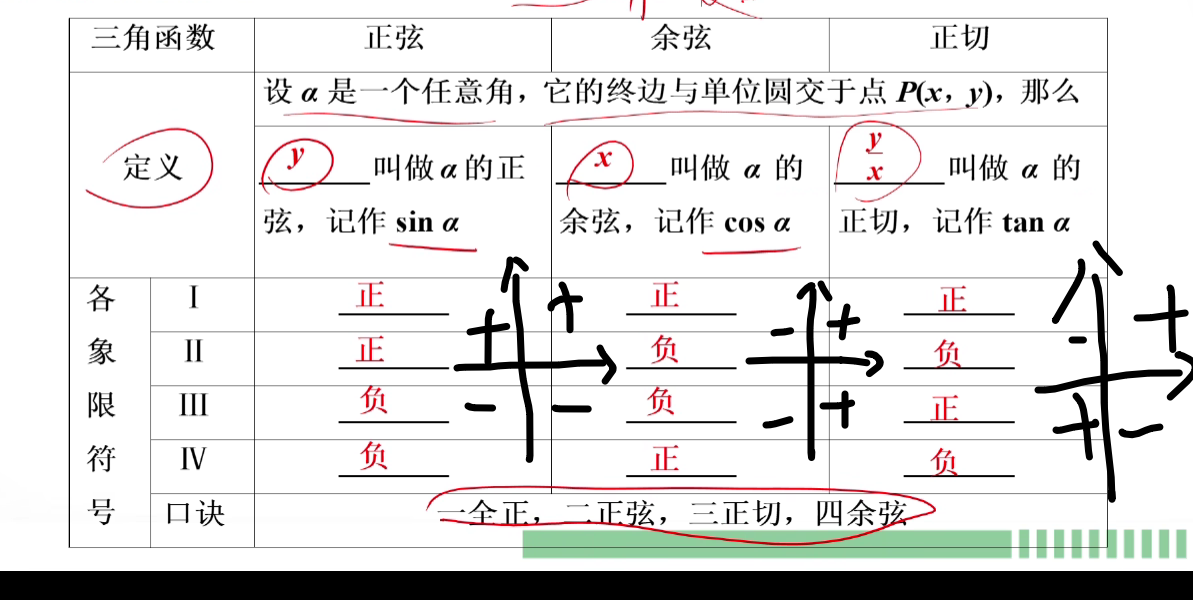 三角函数 正弦 余弦 正切
设 α 是一个任意角，它的终边与单位圆交于点 P(x，y)，那么
定义
y 叫做 α 的正弦，记作 sin α
x 叫做 α 的余弦，记作 cos α
y/x 叫做 α 的正切，记作 tan α
各象限符号
Ⅰ 正 正 正
Ⅱ 正 负 负
Ⅲ 负 负 正
Ⅳ 负 正 负
口诀 一全正，二正弦，三正切，四余弦
+ +
- -
- +
- +
- +
+ -